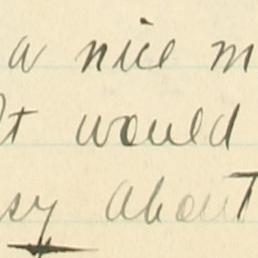 a nice m
It would
sy about